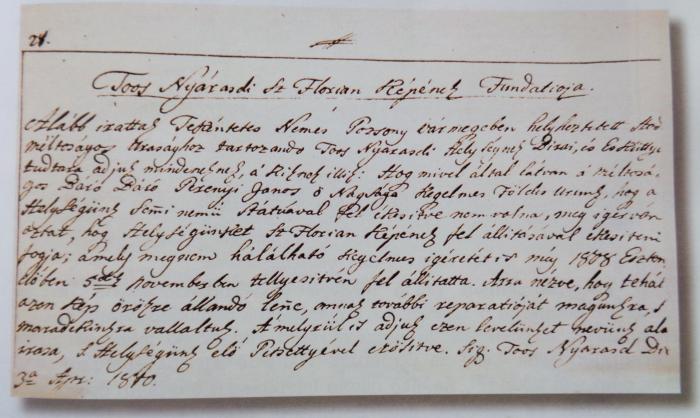 28.
Toos Nyárasdi St Florian Képének Fundatioja.
Alább irattak Tekéntetes Nemes Posony vármegyében helyheztetett
méltóságos Urasághoz tartozando Toos Nyarasdi Helységnek Birai, és Esküttye
tudtára adjuk mindeneknek, a kiknek illik: Hog mivel által látván a méltosá-
gos Báró Báró Perényi Janos ő Nagysága kegelmes Földes Urunk, hog a
Helységünk semi nemü Státuával fel ekesitve nem volna, meg igérvén
aztat, hog Helységünket St Florian Képének fel állitásával ekesiteni
fogja; amely megnem hálálható kegelmes igéretét is még 1808 Eszten
dőben 5dik Novemberben tellyesitvén fel állitatta. Arra nézve, hog tehát
azon kép örökre állando lenne, annak további reparatióját magunkra, s
maradékinkra vállaltuk. A melyrül is adjuk ezen levelünket nevünk alá
irása, s Helységünk elő Petsettyével erősitve. Sig: Toos Nyarasd Die
3a Apr: 1810.